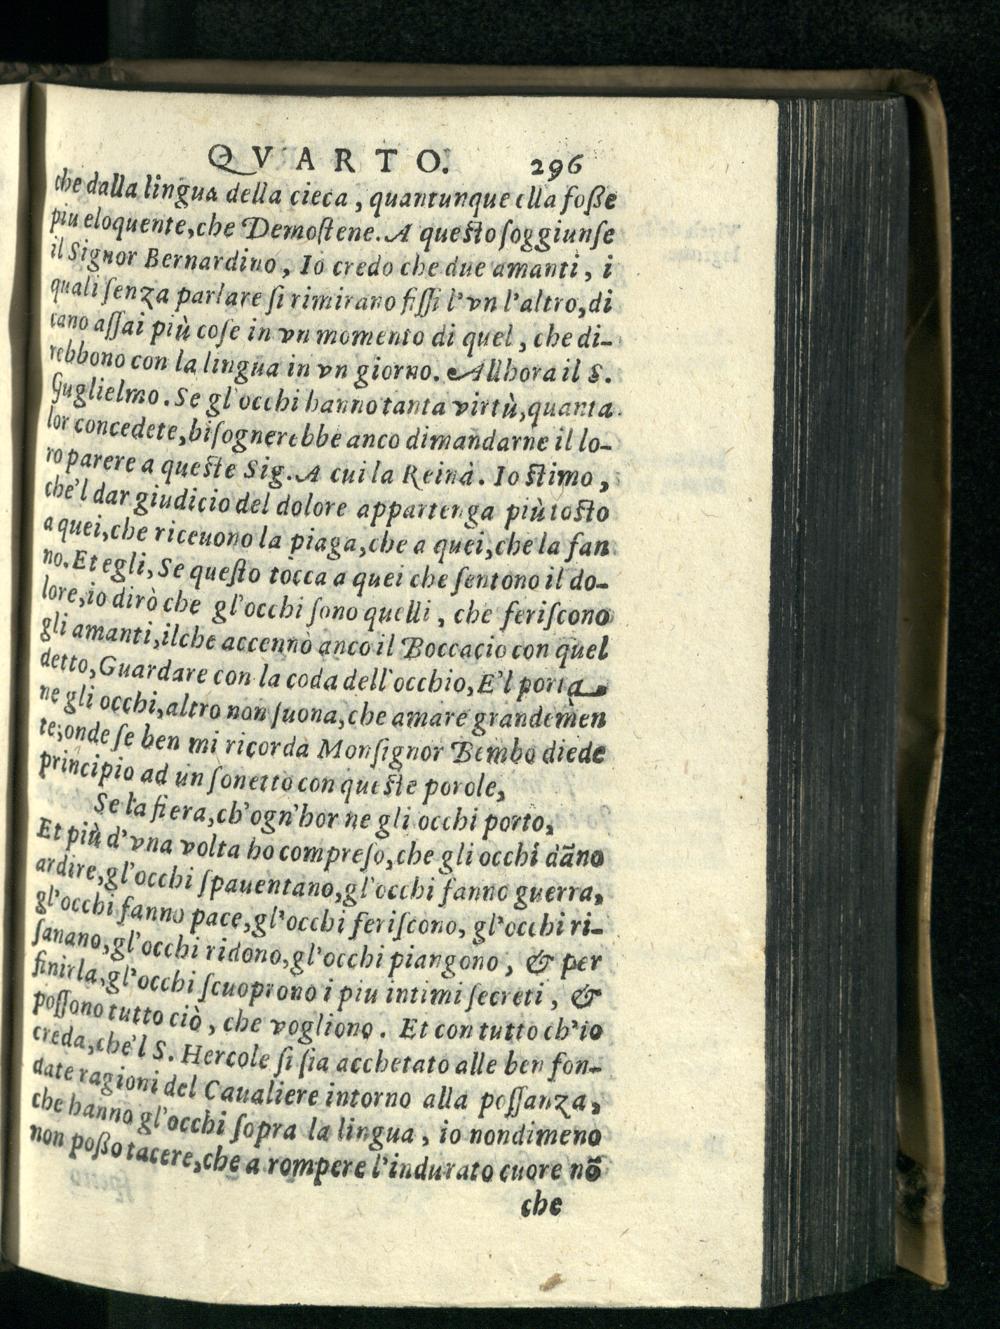 QVARTO. 296
che dalla lingua della cieca, quantunque ella foße
piu eloquente, che Demoſtene. A queſto ſoggiunſe
il Signor Bernardino, Io credo che due amanti, i
quali ſenza parlare ſi rimirano fiſſi l'vn l'altro, di
cano aſſai più coſe in vn momento di quel, che di-
rebbono con la lingua in vn giorno. Allhora il S.
Guglielmo. Se gl'occhi hanno tanta virtù, quanta
lor concedete, biſognerebbe anco dimandarne il lo-
ro parere a queſte Sig. A cui la Reina. Io ſtimo,
che'l dar giudicio del dolore appartenga più toſto
a quei, che riceuono la piaga, che a quei, che la fan
no. Et egli, Se queſto tocca a quei che ſentono il do-
lore, io dirò che gl'occhi ſono quelli, che feriſcono
gli amanti, ilche accennò anco il Boccacio con quel
detto, Guardare con la coda dell'occhio, E'l porta
ne gli occhi, altro non ſuona, che amare grandemen
te; onde ſe ben mi ricorda Monſignor Bembo diede
principio ad un ſonetto con queſte porole,
Se la fiera, ch'ogn'hor ne gli occhi porto,
Et più d'vna volta ho compreſo, che gli occhi dāno
ardire, gl'occhi ſpauentano, gl'occhi fanno guerra,
gl'occhi fanno pace, gl'occhi feriſcono, gl'occhi ri-
ſanano, gl'occhi ridono, gl'occhi piangono, & per
finirla, gl'occhi ſcuoprono i piu intimi ſecreti, &
poſſono tutto ciò, che vogliono. Et con tutto ch'io
creda, che'l S. Hercole ſi ſia acchetato alle ben fon-
date ragioni del Caualiere intorno alla poſſanza,
che hanno gl'occhi ſopra la lingua, io nondimeno
non poßo tacere, che a rompere l'indurato cuore nō
che